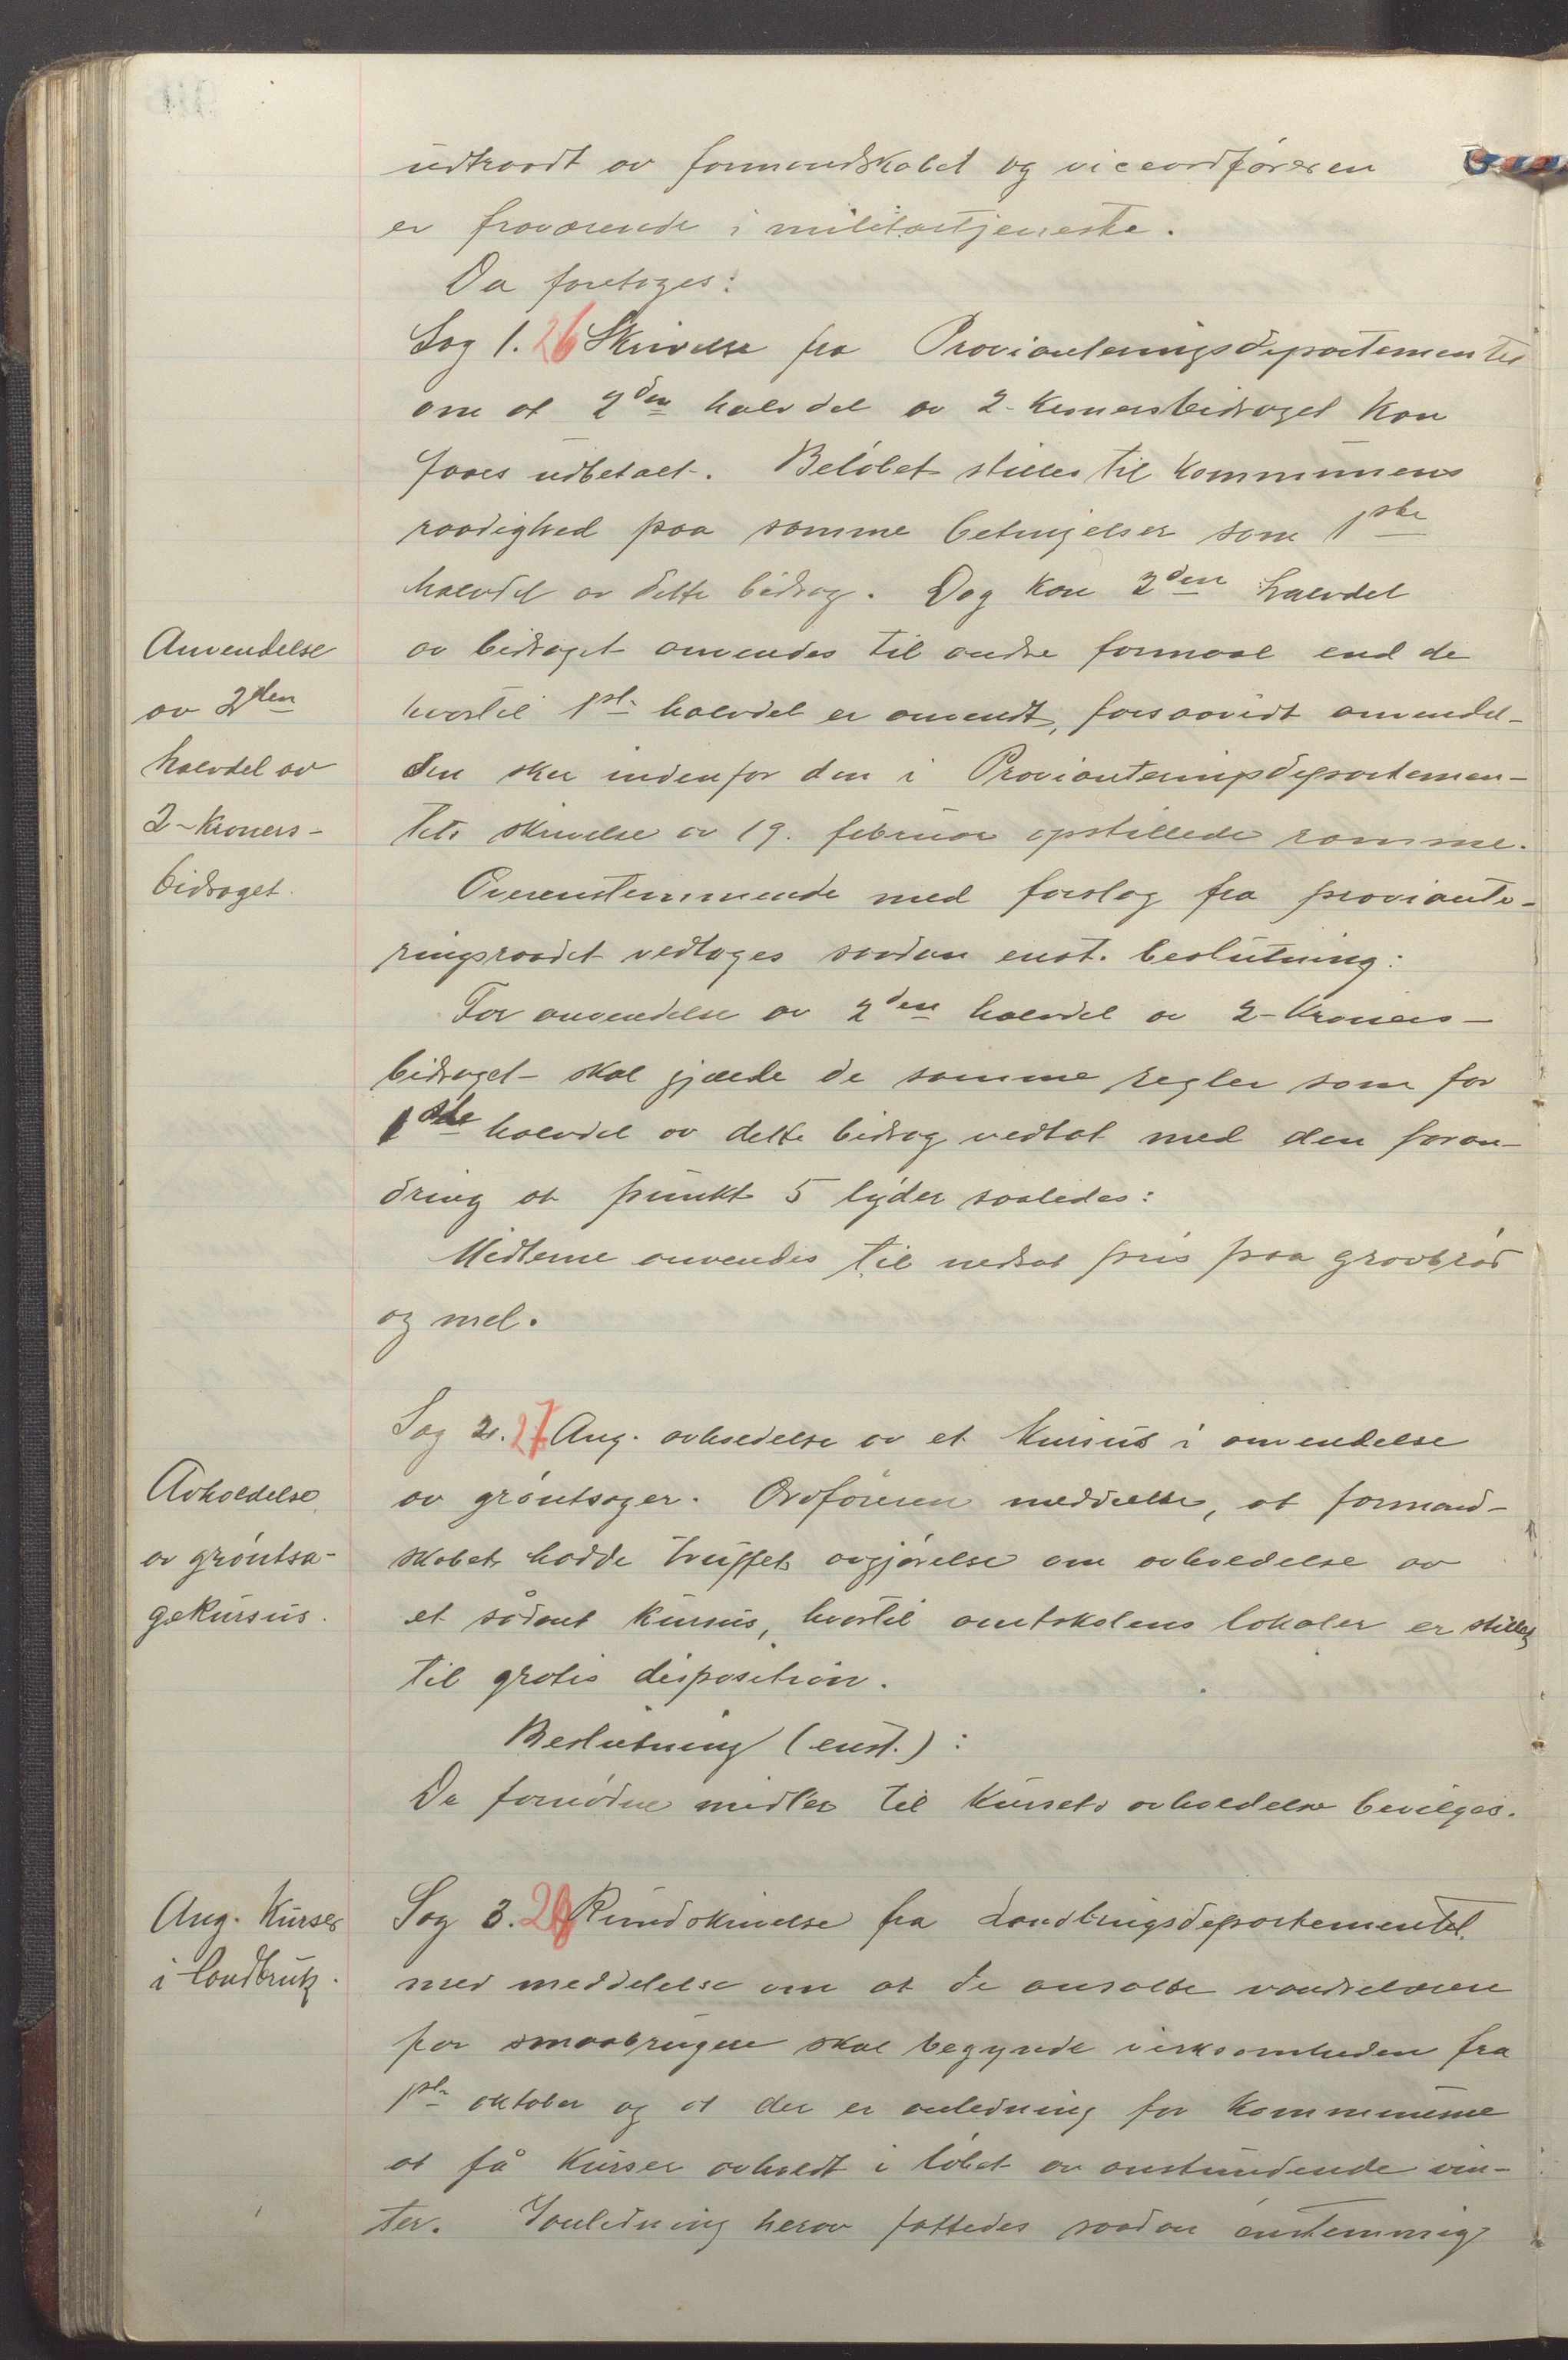 udtraadt av formandskabet og viceordføreren
er fraværende i militærtjeneste.
Da foretoges:
Sag 1. 26 Skrivelse fra Provianteringsdepartementet
om at 2den halvdel av 2-kronersbidraget kan
faaes udbetalt. Beløbet stilles til kommunens
raadighed paa samme betingelser som 1ste
halvdel av dette bidrag. Dog kan 2den halvdel
Anvendelse
av 2den
halvdel av
2-kroners-
bidraget.
av bidraget anvendes til andre formaal end de
hvortil 1ste halvdel er anvendt, forsaavidt anvendel-
sen sker indenfor den i Provianteringsdepartemen-
tets skrivelse av 19. februar opstillede ramme.
Overenstemmende med forslag fra proviante-
ringsraadet vedtoges saadan enst. beslutning:
For anvendelse av 2den halvdel av 2-kroners-
bidraget skal gjælde de samme regler som for
1ste halvdel av dette bidrag vedtat med den foran-
dring at punkt 5 lyder saaledes:
Midlerne anvendes til nedsat pris paa grovbrød
og mel.
Sag 2. 27 Ang. avholdelse av et kursus i anvendelse
Avholdelse
av grøntsa-
gekursus.
av grøntsager. Ordføreren meddelte, at formand-
skabet hadde truffet avgjørelse om avholdelse av
et sådant kursus, hvortil amtskolens lokaler er stillet
til gratis disposition.
Beslutning (enst.):
De fornødne midler til kursets avholdelse bevilges.
Ang. kurser
i landbruk.
Sag 3. 28 Rundskrivelse fra Landbrugsdepartementet
med meddelelse om at de ansatte vandrelærere
for smaabrugere skal begynde virksomheden fra
1ste oktober og at der er anledning for kommunerne
at få kurser avholdt i løbet av anstundende vin-
ter. I anledning herav fattedes saadan enstemmig